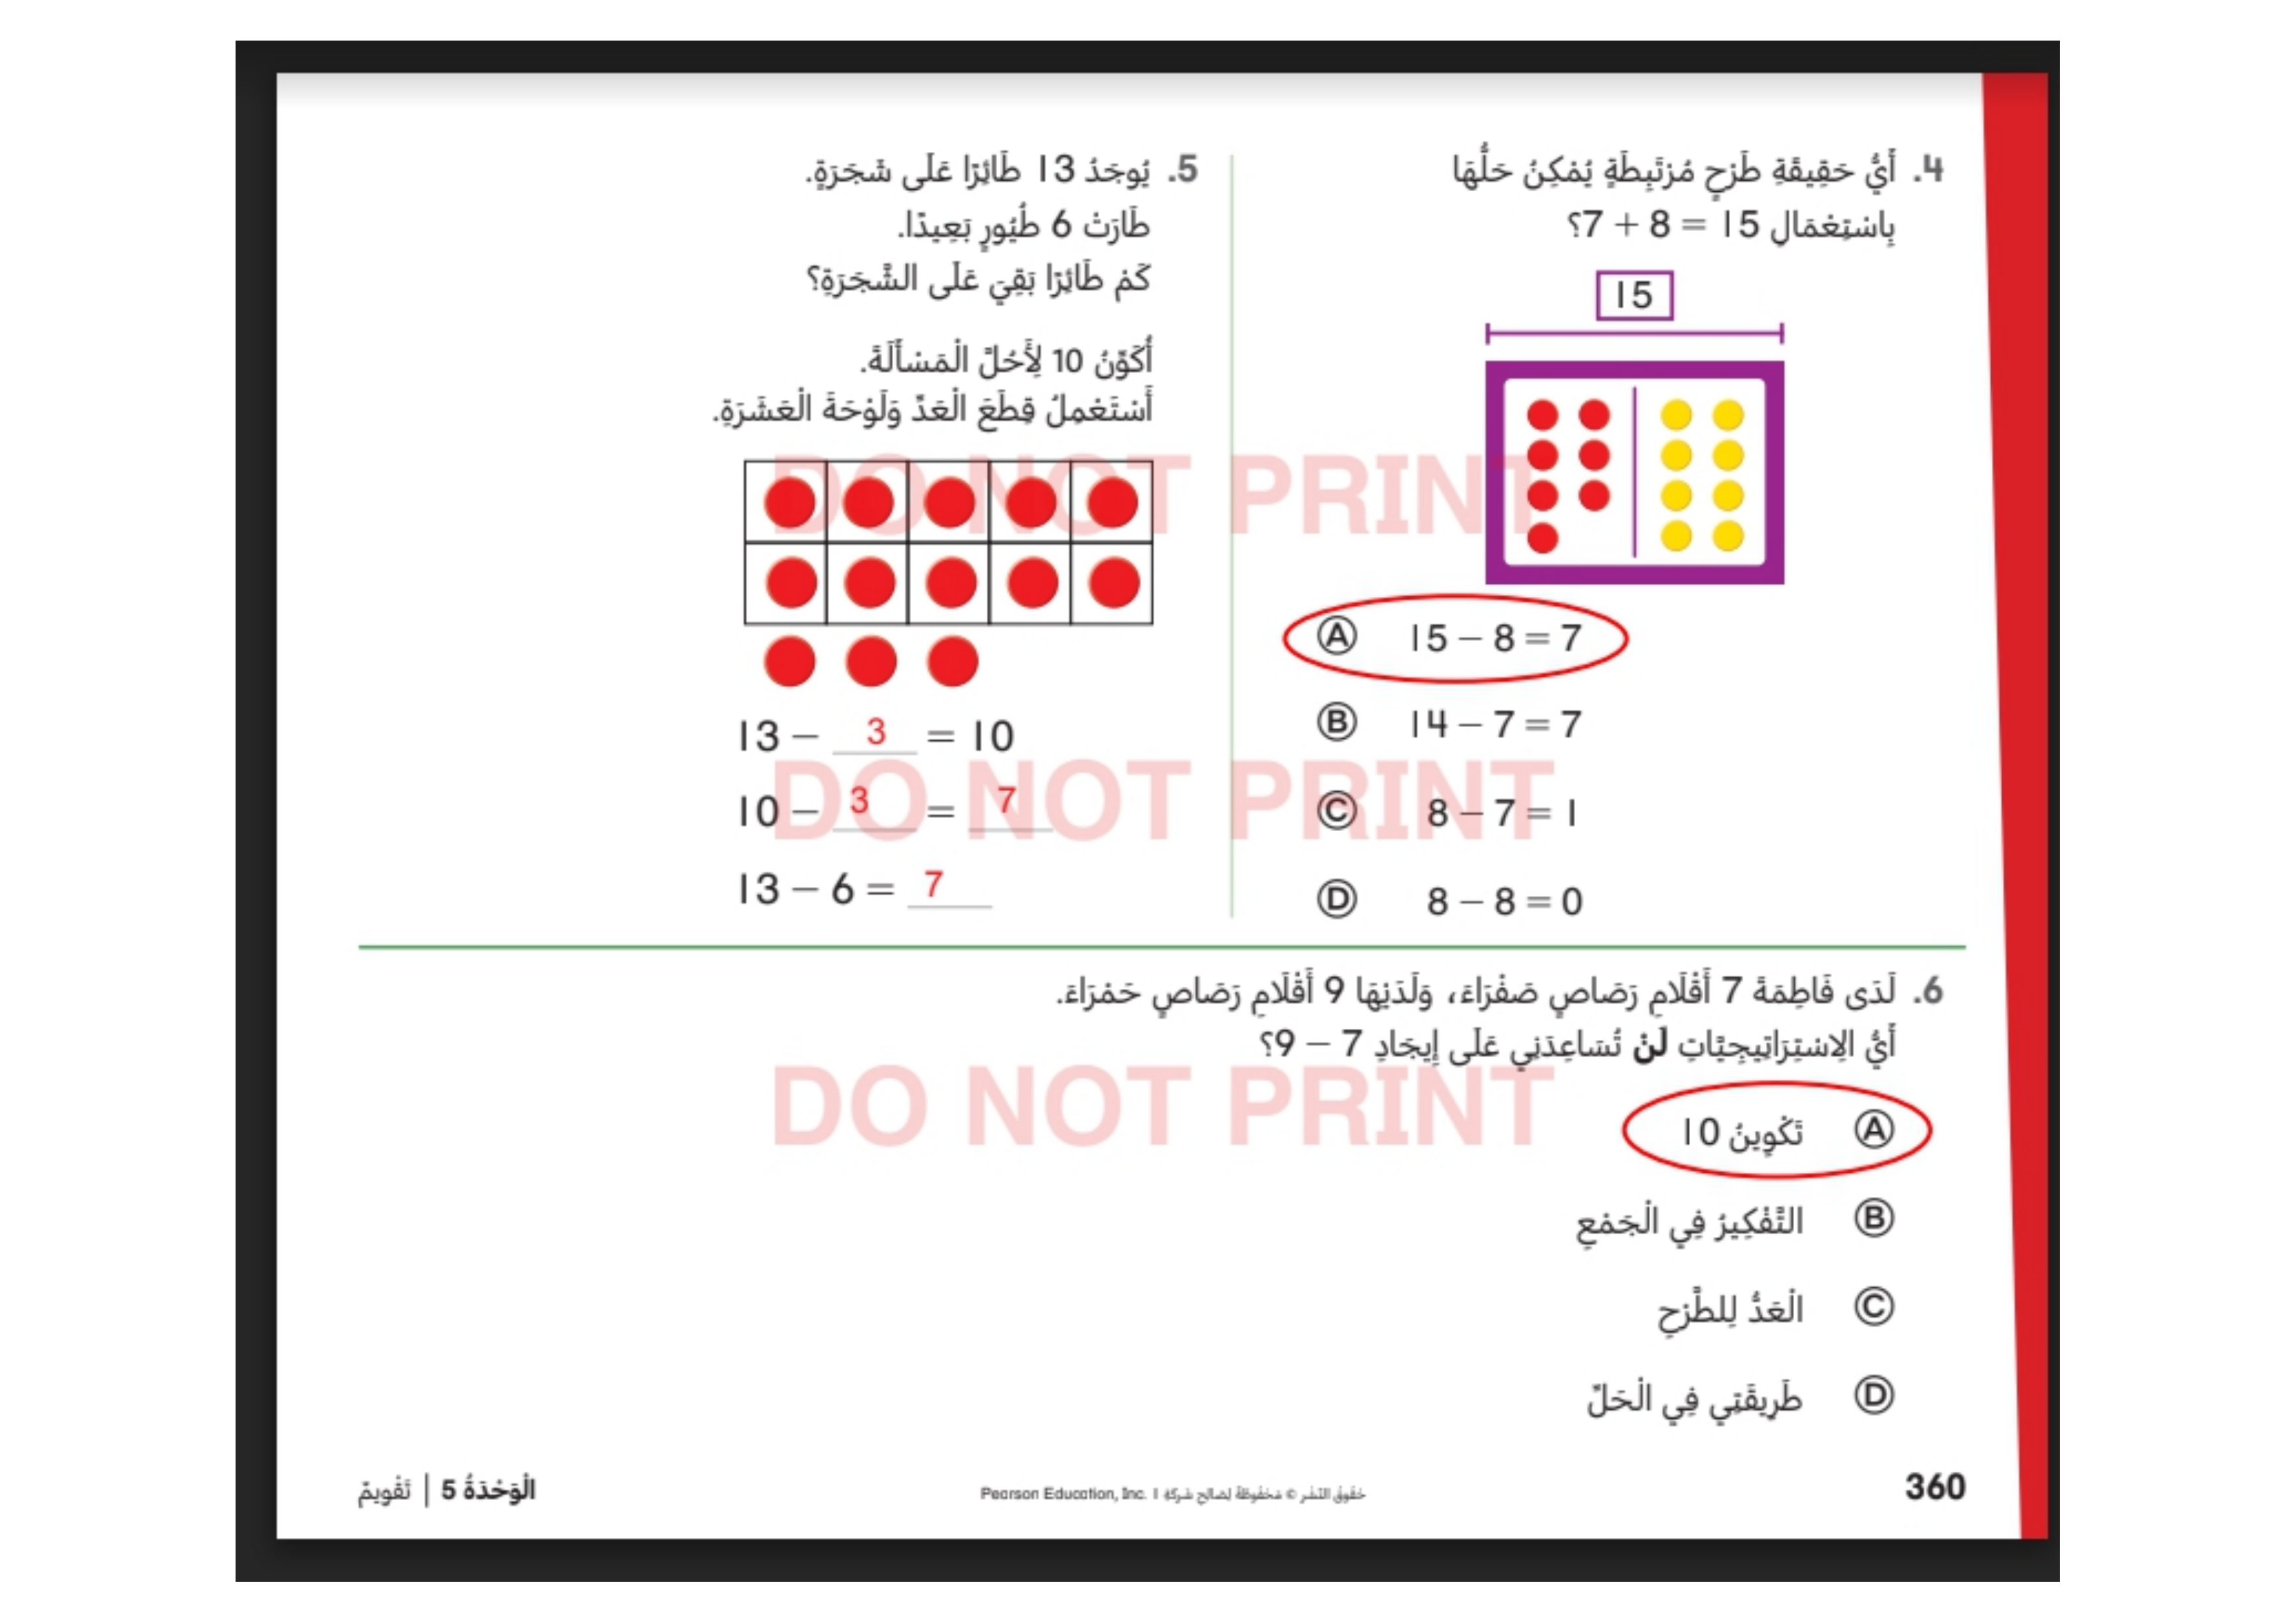 4. أَيُّ حَقِيقَةِ طَرْحٍ مُرْتَبِطَةٍ يُمْكِنُ حَلُّهَا
بِاسْتِعْمَالِ 15 = 8 + 7؟
15
Ⓐ 15 – 8 = 7
Ⓑ 14 – 7 = 7
Ⓒ 8 – 7 = 1
Ⓓ 8 – 8 = 0
5. يُوجَدُ 13 طَائِرًا عَلَى شَجَرَةٍ.
طَارَتْ 6 طُيُورٍ بَعِيدًا.
كَمْ طَائِرًا بَقِيَ عَلَى الشَّجَرَةِ؟
أُكَوِّنُ 10 لِأَحُلَّ الْمَسْأَلَةَ.
أَسْتَعْمِلُ قِطَعَ الْعَدِّ وَلَوْحَةَ الْعَشَرَةِ.
13 – 3 = 10
10 – 3 = 7
13 – 6 = 7
6. لَدَى فَاطِمَةَ 7 أَقْلَامِ رَصَاصٍ صَفْرَاءَ، وَلَدَيْهَا 9 أَقْلَامِ رَصَاصٍ حَمْرَاءَ.
أَيُّ الِاسْتِرَاتِيجِيَّاتِ لَنْ تُسَاعِدَنِي عَلَى إِيجَادِ 7 – 9؟
Ⓐ تَكْوِينُ 10
Ⓑ التَّفْكِيرُ فِي الْجَمْعِ
Ⓒ الْعَدُّ لِلطَّرْحِ
Ⓓ طَرِيقَتِي فِي الْحَلِّ
DO NOT PRINT
DO NOT PRINT
DO NOT PRINT
360
حُقُوقُ النَّشْرِ © مَحْفُوظَةٌ لِصَالِحِ شَرِكَةِ Pearson Education, Inc. I
الْوَحْدَةُ 5 | تَقْوِيمٌ